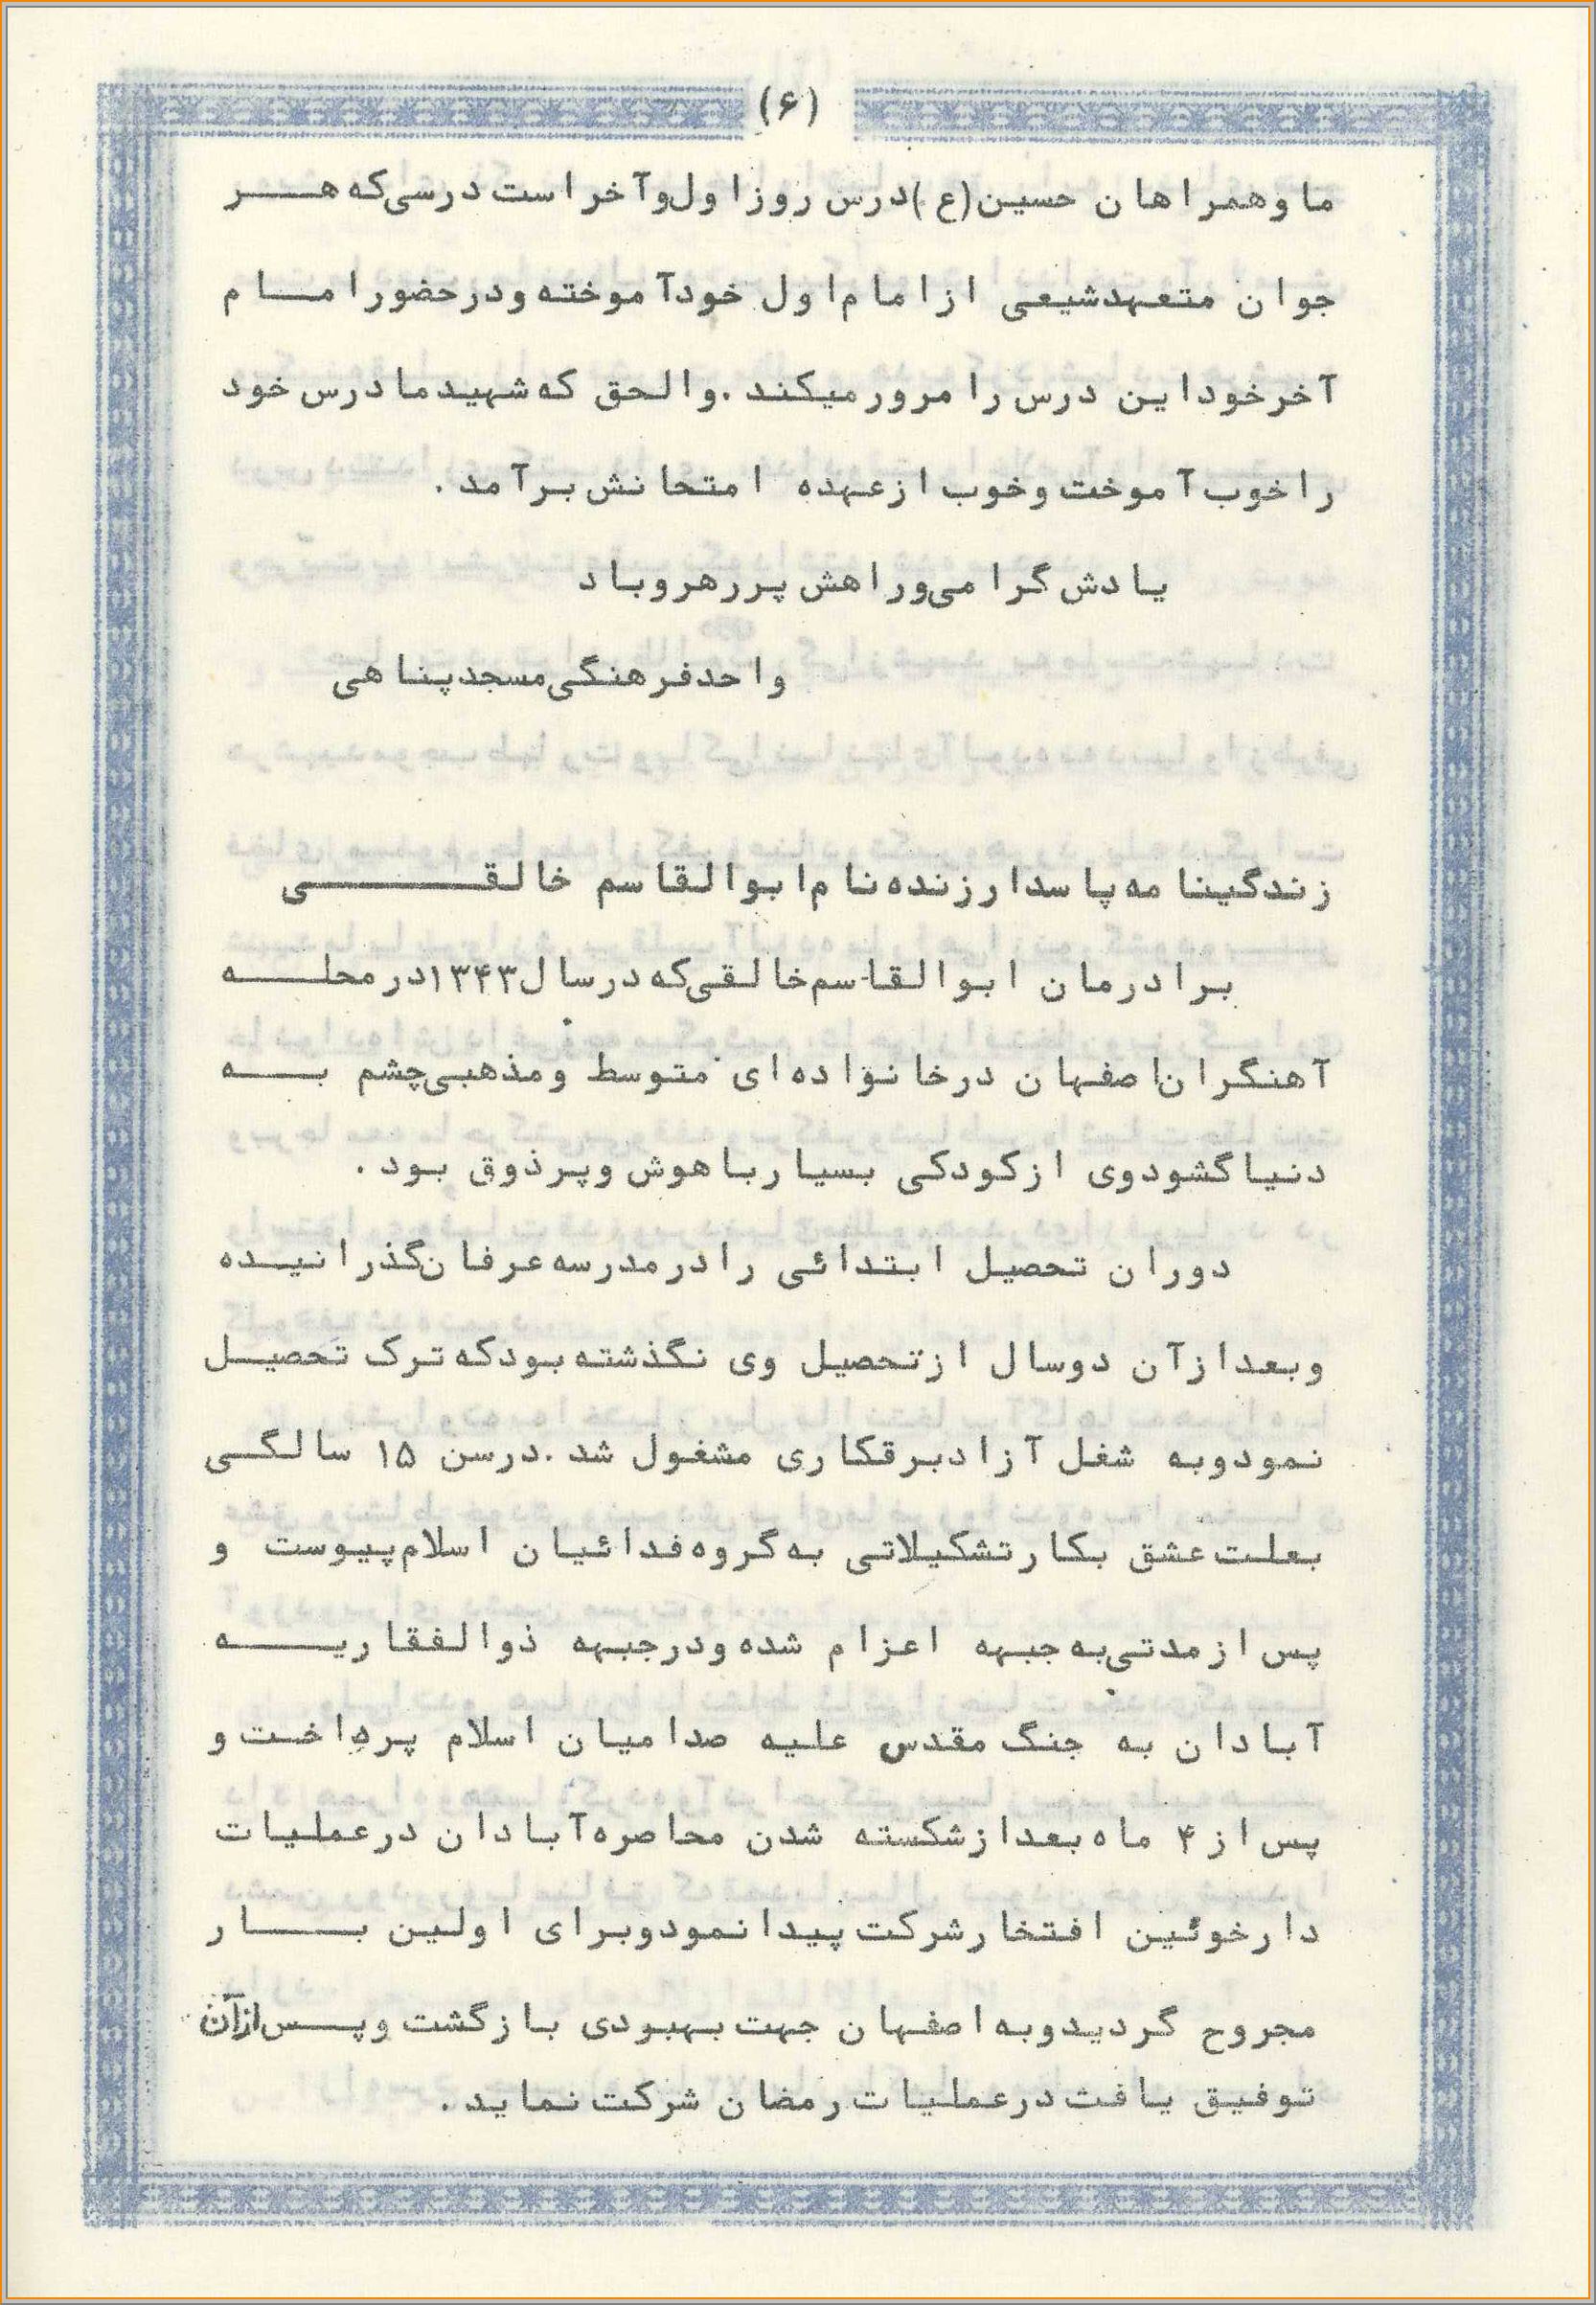 (۶)
ما و همراهان حسین(ع) درس روز اول و آخر است درسی که هر
جوان متعهد شیعی از امام اول خود آموخته و در حضور امام
آخر خود این درس را مرور میکند . والحق که شهید ما درس خود
را خوب آموخت و خوب از عهده امتحانش برآمد .
یادش گرامی و راهش پررهرو باد
واحد فرهنگی مسجد پناهی
زندگینامه پاسدار زنده نام ابوالقاسم خالقی
برادرمان ابوالقاسم خالقی که در سال ۱۳۴۳ در محله
آهنگران اصفهان در خانواده ای متوسط و مذهبی چشم به
دنیا گشود وی از کودکی بسیار با هوش و پر ذوق بود .
دوران تحصیل ابتدائی را در مدرسه عرفان گذرانیده
و بعد از آن دو سال از تحصیل وی نگذشته بود که ترک تحصیل
نمود و به شغل آزاد برقکاری مشغول شد . در سن ۱۵ سالگی
بعلت عشق بکار تشکیلاتی به گروه فدائیان اسلام پیوست و
پس از مدتی به جبهه اعزام شده و در جبهه ذوالفقاریه
آبادان به جنگ مقدس علیه صدامیان اسلام پرداخت و
پس از ۴ ماه بعد از شکسته شدن محاصره آبادان در عملیات
دارخوئین افتخار شرکت پیدا نمود و برای اولین بار
مجروح گردید و به اصفهان جهت بهبودی بازگشت و پس از آن
توفیق یافت در عملیات رمضان شرکت نماید .